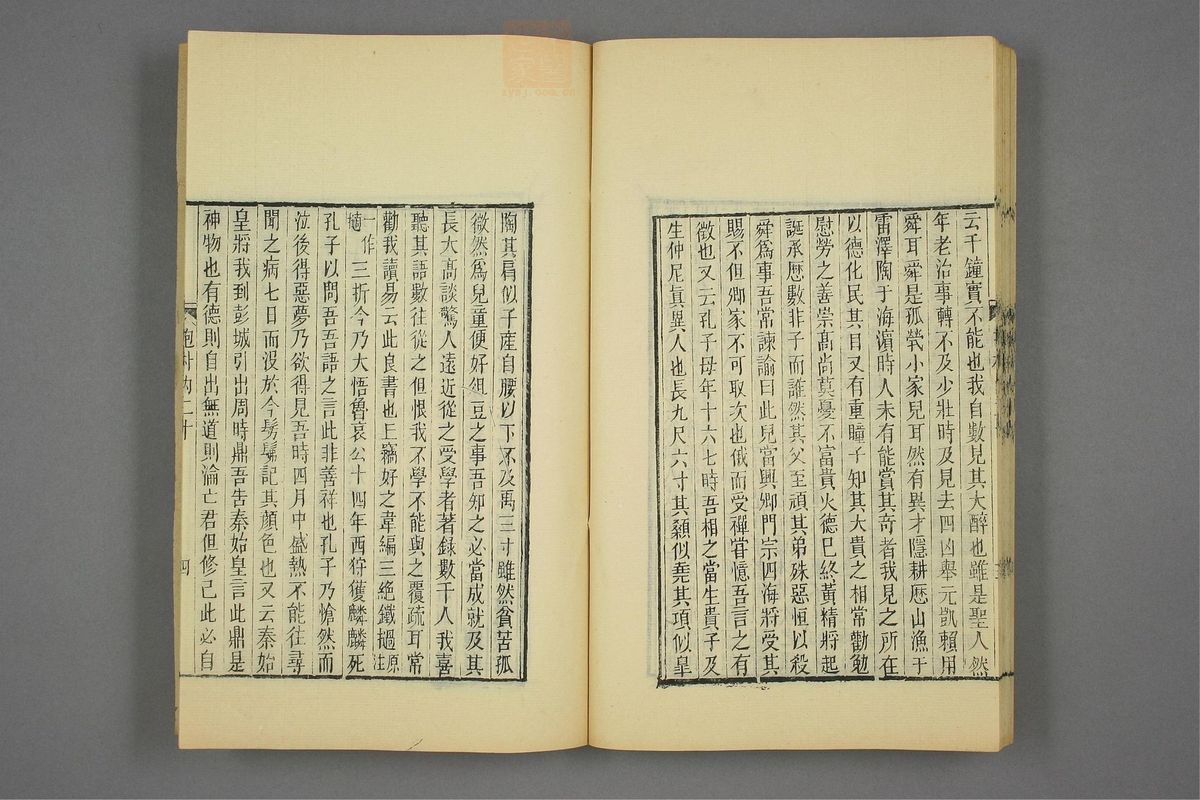 云千鐘實不能也我自數見其大醉也雖是聖人然
年老治事轉不及少壯時及見去四凶舉元凱賴用
舜耳舜是孤煢小家兒耳然有異才隱耕歷山漁于
雷澤陶于海濵時人未有能賞其竒者我見之所在
以德化民其目又有重瞳子知其大貴之相常勸勉
慰勞之善崇髙尚莫憂不富貴火德巳終黃精將起
誕承歷數非子而誰然其父至頑其弟殊惡恒以殺
舜爲事吾常諫諭曰此兒當興卿門宗四海將受其
賜不但卿家不可取次也俄而受禪甞憶吾言之有
徵也又云孔子母年十六七時吾相之當生貴子及
生仲尼眞異人也長九尺六寸其顙似堯其項似臯
陶其肩似子產自腰以下不及禹三寸雖然貧苦孤
微然爲兒童便好俎豆之事吾知之必當成就及其
長大髙談驚人遠近從之受學者著録數千人我喜
聽其語數往從之但恨我不學不能與之覆疏耳常
勸我讀易云此良書也丘竊好之韋編三絶鐵撾原注
一作擿三折今乃大悟魯哀公十四年西狩獲麟麟死
孔子以問吾吾語之言此非善祥也孔子乃愴然而
泣後得惡夢乃欲得見吾時四月中盛熱不能往尋
聞之病七日而沒於今髣髴記其顔色也又云秦始
皇將我到彭城引出周時鼎吾告秦始皇言此鼎是
神物也有德則自出無道則淪亡君但修己此必自
抱朴內二十
四